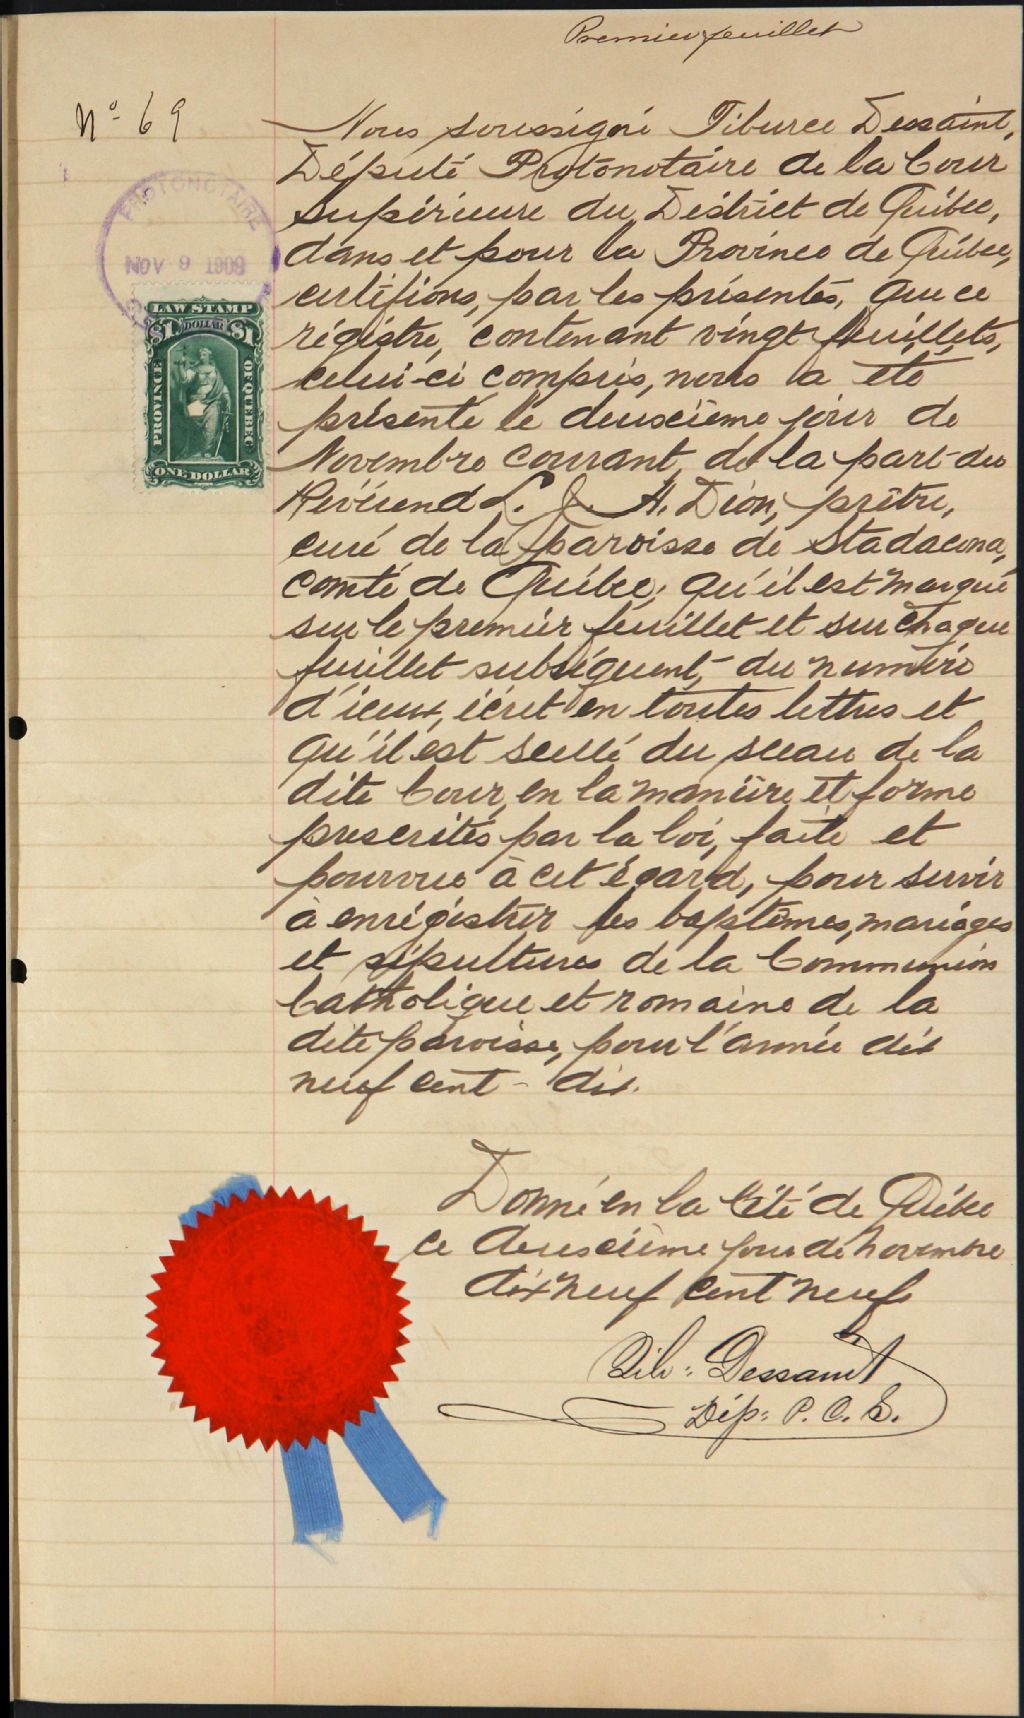 Premier feuillet
Nº 69
Nous soussigné Tiburce Dessaint,
Député Protonotaire de la Cour
Supérieure du District de Québec,
dans et pour la Province de Québec,
certifions, par les présentes, que ce
régistre, contenant vingt feuillets,
celui-ci compris, nous a été
présenté le deuxième jour de
Novembre courant, de la part du
Révérend L. J. A. Dion, prêtre,
curé de la paroisse de Stadacona,
comté de Québec, qu'il est marqué
sur le premier feuillet et sur chaque
feuillet subséquent, du numéro
d'iceux, écrit en toutes lettres et
qu'il est scellé du sceau de la
dite Cour, en la manière et forme
prescrites par la loi, faite et
pourvue à cet égard, pour servir
à enrégistrer les baptêmes, mariages
et sépultures de la Communion
Catholique et romaine de la
dite paroisse, pour l'année dix
neuf cent - dix.
PROTONOTAIRE
NOV 9 1909
LAW STAMP
$1 DOLLAR $1
PROVINCE OF QUEBEC
ONE DOLLAR
Donné en la Cité de Québec
ce deuxième jour de novembre
dix neuf cent neuf
Tib: Dessaint
Dép: P. C. S.